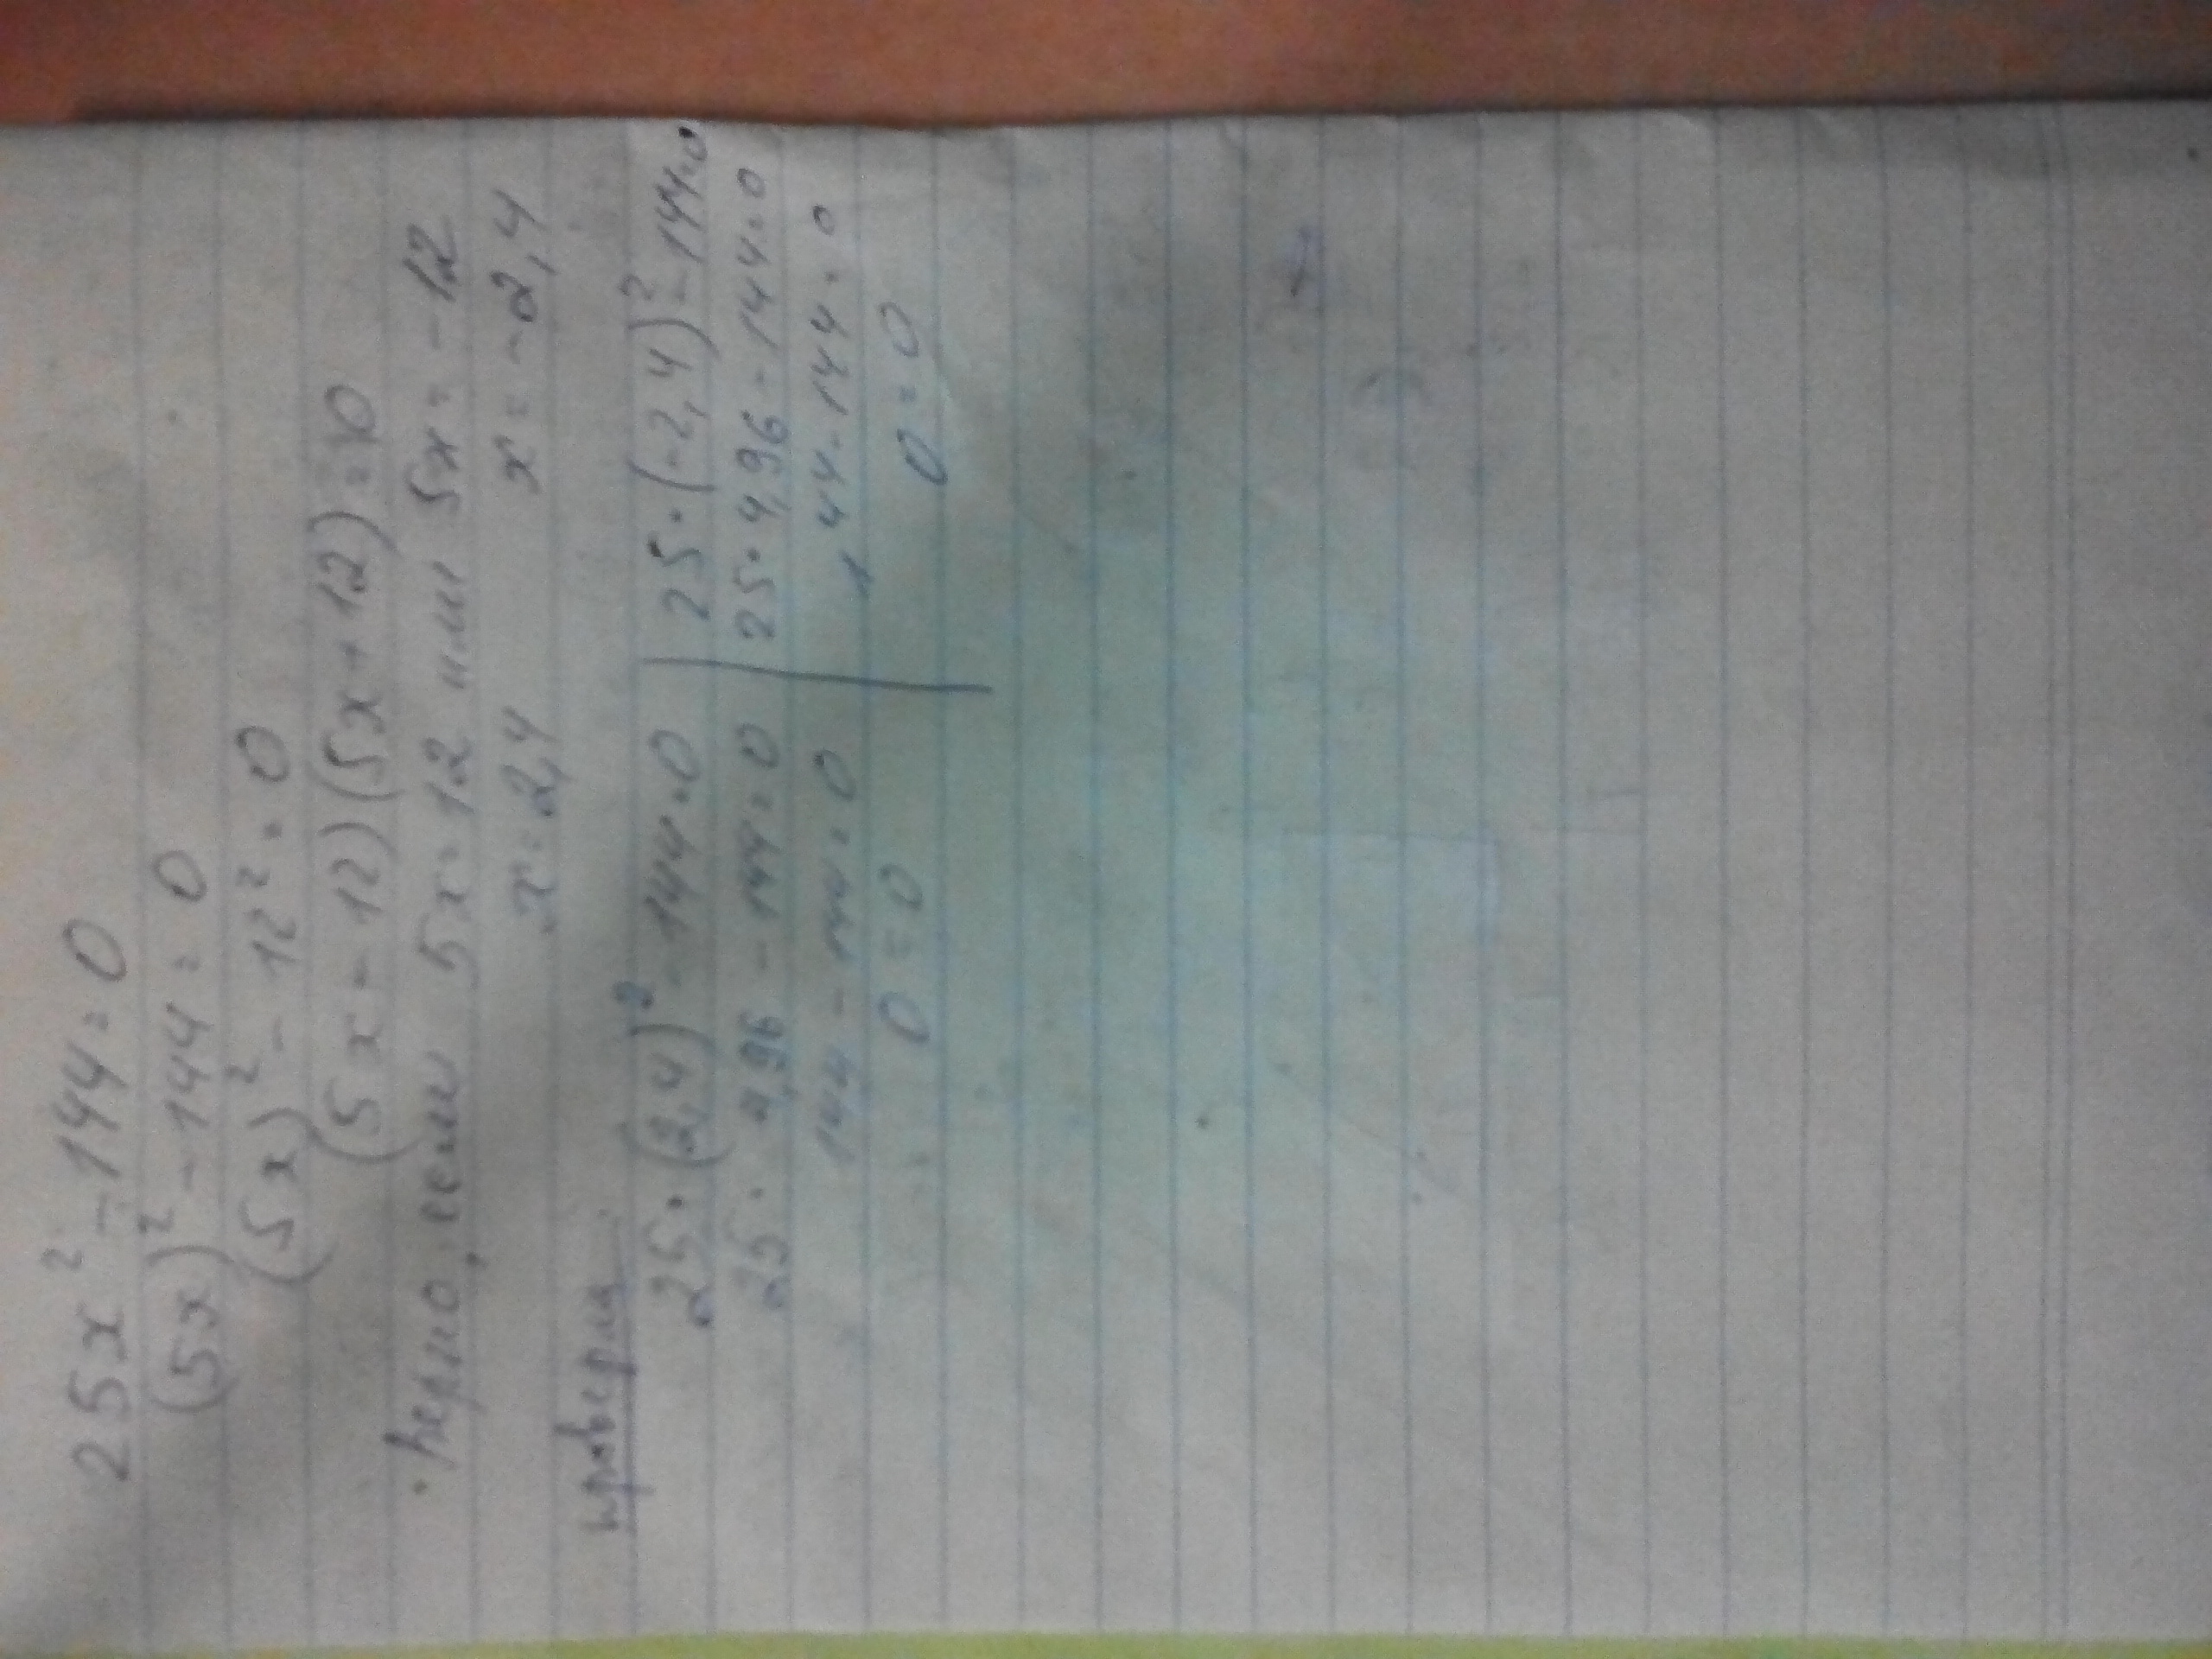 25x² - 144 = 0
(5x)² - 144 = 0
(5x)² - 12² = 0
(5x - 12)(5x + 12) = 0
верно, если 5x = 12 или 5x = -12
x = 2,4 x = -2,4
проверим
25·(2,4)² - 144 = 0 | 25·(-2,4)² - 144 = 0
25· 4,96 - 144 = 0 | 25·4,96 - 144 = 0
144 - 144 = 0 | 144 - 144 = 0
0 = 0 | 0 = 0